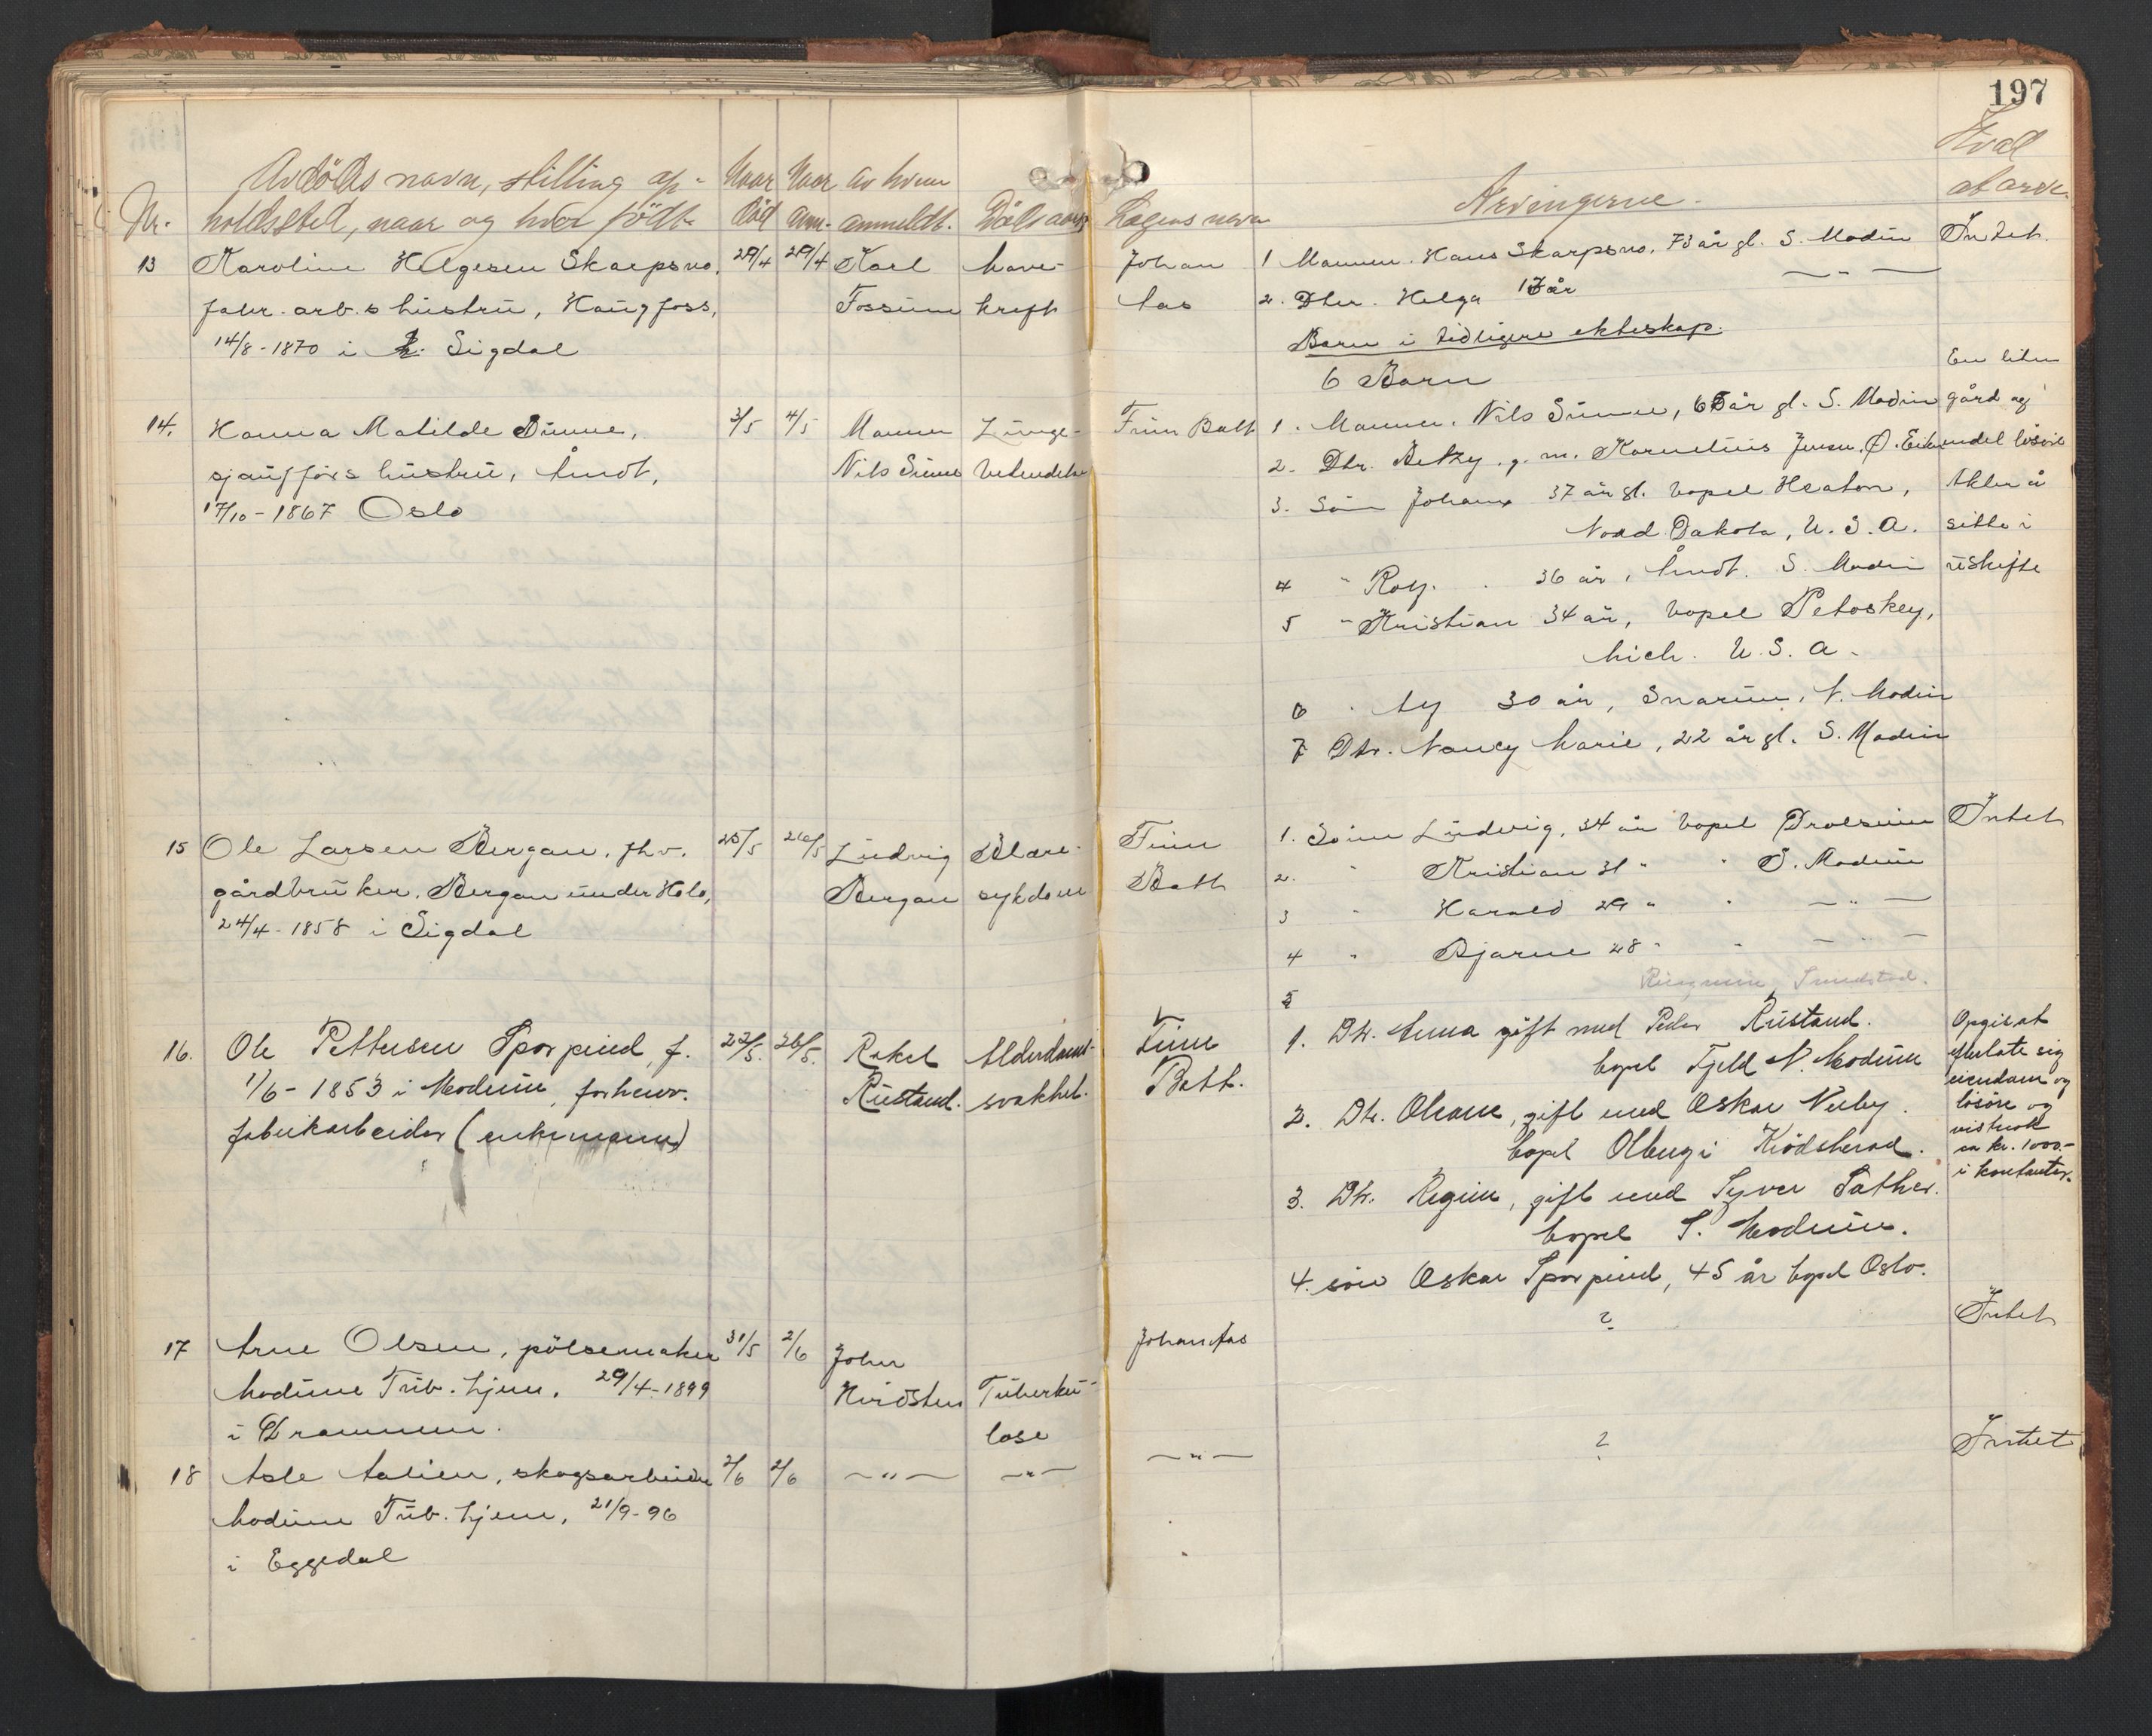 197
Nr.
Avdödes navn, stilling op-
holdssted, naar og hvor födt
Naar
död
Naar
anm.
Av hvem
anmeldt.
Dödsaars.
Lægens navn
Arvingerne.
Hvad
at arve.
13
Karoline Helgesen Skarpsno,
fabr. arb.s hustru, Haugfoss,
14/8-1870 i Sigdal
29/4
29/4
Karl
Fossum
Mave-
kreft
Johan
Aas
1 Mannen. Hans Skarpsno, 73 år gl. S. Modum
2. Dtr. Helga 17 år — " —
Barn i tidligere ekteskap.
6 Barn
Intet.
14.
Hanna Matilde Simme,
sjaufförs hustru, Åmot,
17/10-1867 Oslo
3/5
4/5
Mannen
Nils Simme
Lunge-
betendelse
Finn Batt
1. Mannen. Nils Simme, 65 år gl. S. Modum
2. Dtr. Betzy g. m. Kornelius Jensen, Ö. Eiker
3. Sön Johann 37 år gl. bopel Heaton,
Nord Dakota, U.S.A.
4 " Roy. 36 år, Åmot. S. Modum
5 " Kristian 34 år, bopel Petoskey,
Mich. U.S.A.
6 " Ay 30 år, Snarum, N. Modum
7 Dtr. Nancy Marie, 22 år gl. S. Modum
En liten
gård og
endel lösöre
Akter å
sitte i
uskifte
15
Ole Larsen Bergan, fhv.
gårdbruker. Bergan under Hole,
24/4-1858 i Sigdal
25/5
26/5
Ludvig
Bergan
Blære-
sykdom
Finn
Batt
1. Sönn Ludvig, 34 år bopel Drolsum
2. " Kristian 31 " " S. Modum
3 " Harald 29 " " — " —
4 " Bjarne 28 " " — " —
5
Intet
16.
Ole Pettersen Sporpind, f.
1/6-1853 i Modum, forhenv.
fabrikarbeider (enkemann)
22/5.
26/5.
Rakel
Rustand.
Alderdoms-
svakhet.
Finn
Batt.
1. Dtr. Anna gift med Peder Rustand.
bopel Fjeld N. Modum
2. Dtr. Oleane, gift med Oskar Nerby.
bopel Olberg i Krödsherad.
3. Dtr. Regine, gift med Syver Sather.
bopel S. Modum.
4. sön Oskar Sporpind, 45 år bopel Oslo.
Opgis at
efterlate sig
eiendom og
lösöre og
vistnok
ca kr. 1000.-
i kontanter.
17
Arne Olsen, pölsemaker
Modum Tub. hjem, 29/4-1899
i Drammen.
31/5
2/6
John
Hvidsten
Tuberku-
lose
Johan Aas
?
Intet
18
Asle Aalien, skogsarbeider
Modum Tub. hjem, 21/9-96
i Eggedal
2/6
2/6
— " —
— " —
— " —
?
Intet